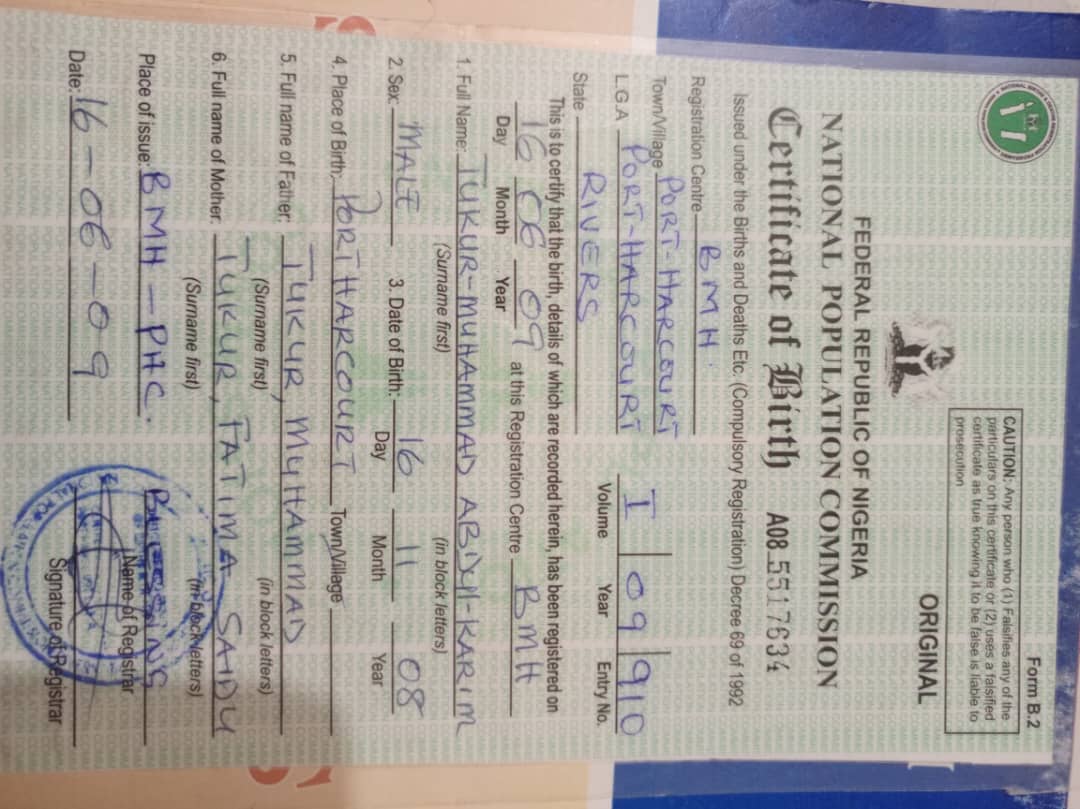 Form B.2
CAUTION: Any person who (1) Falsifies any of the
particulars on this certificate or (2) uses a falsified
certificate as true knowing it to be false is liable to
prosecution
ORIGINAL
FEDERAL REPUBLIC OF NIGERIA
NATIONAL POPULATION COMMISSION
Certificate of Birth A08 5517634
Issued under the Births and Deaths Etc. (Compulsory Registration) Decree 69 of 1992
Registration Centre BMH.
Town/Village PORT-HARCOURT
L.G.A PORT-HARCOURT I 09 910
State RIVERS Volume Year Entry No.
This is to certify that the birth, details of which are recorded herein, has been registered on
16 06 09 at this Registration Centre BMH
Day Month Year
1. Full Name: TUKUR-MUHAMMAD ABDUL-KARIM
(Surname first) (in block letters)
2. Sex: MALE 3. Date of Birth: 16 11 08
Day Month Year
4. Place of Birth: PORT HARCOURT Town/Village
5. Full name of Father: TUKUR, MUHAMMAD
(Surname first) (in block letters)
6. Full name of Mother: TUKUR, FATIMA SAIDU
(Surname first) (in block letters)
Place of issue: BMH - PHC. BLESSING
Name of Registrar
Date: 16-06-09
Signature of Registrar